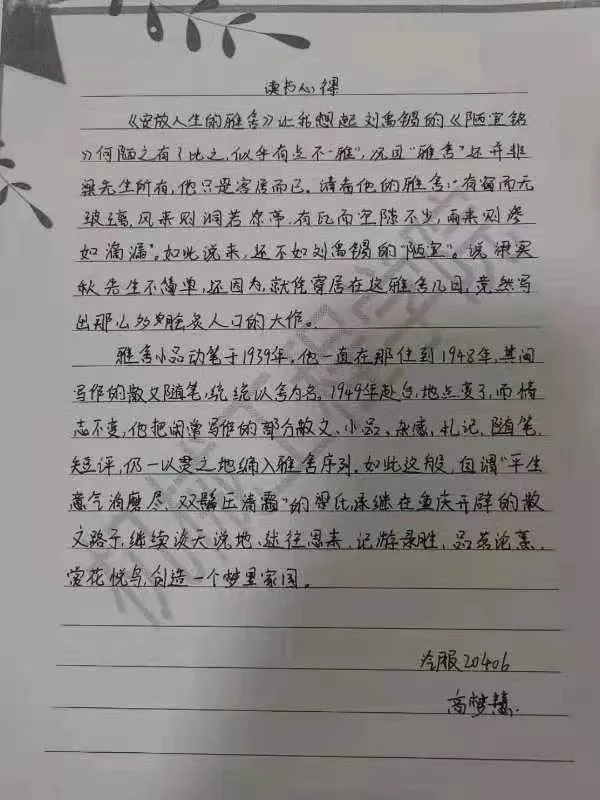 读书心得
《安放人生的雅舍》让我想起刘禹锡的《陋室铭
》何陋之有?比之,似乎有点不"雅",况且"雅舍"还并非
梁先生所有,他只是客居而已。请看他的雅舍:"有窗而无
玻璃,风来则洞若凉亭,有瓦而空隙不少,雨来则渗
如滴漏"。如此说来,还不如刘禹锡的"陋室"。说梁实
秋先生不简单,还因为,就凭寄居在这雅舍几日,竟然写
出那么多脍炙人口的大作。
雅舍小品动笔于1939年,他一直在那住到1948年,其间
写作的散文随笔,统统以舍为名。1949年赴台,地点变了,而情
志不变,他把闲常写作的部分散文、小品、杂感、札记、随笔、
短评,仍一以贯之地编入雅舍序列。如此这般,自谓"平生
意气消磨尽,双鬓压清霜"的梁氏,承继在重庆开辟的散
文路子,继续谈天说地、述往思来、记游录胜、品茗论蒸、
赏花悦鸟,创造一个梦里家园。
冷服20406
高梦慧.
机械工程学院